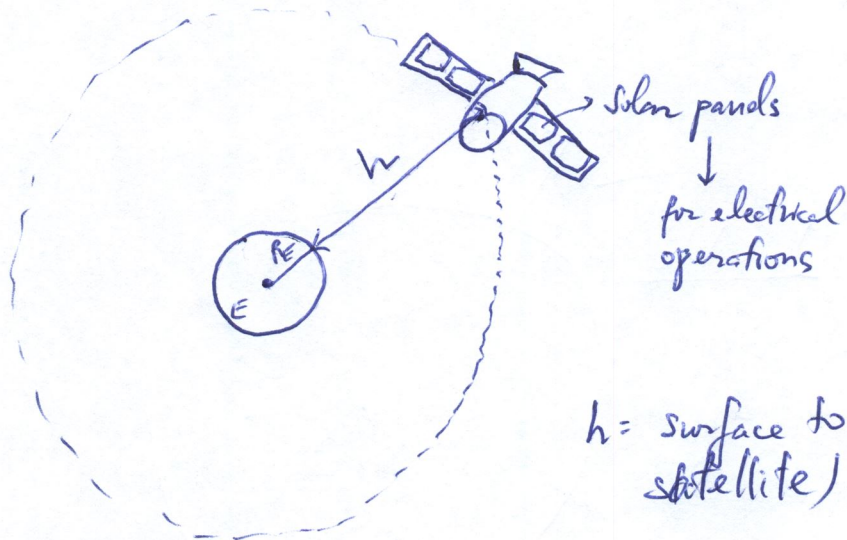 Solar panels
for electrical
operations
h
RE
E
h = surface to
satellite)